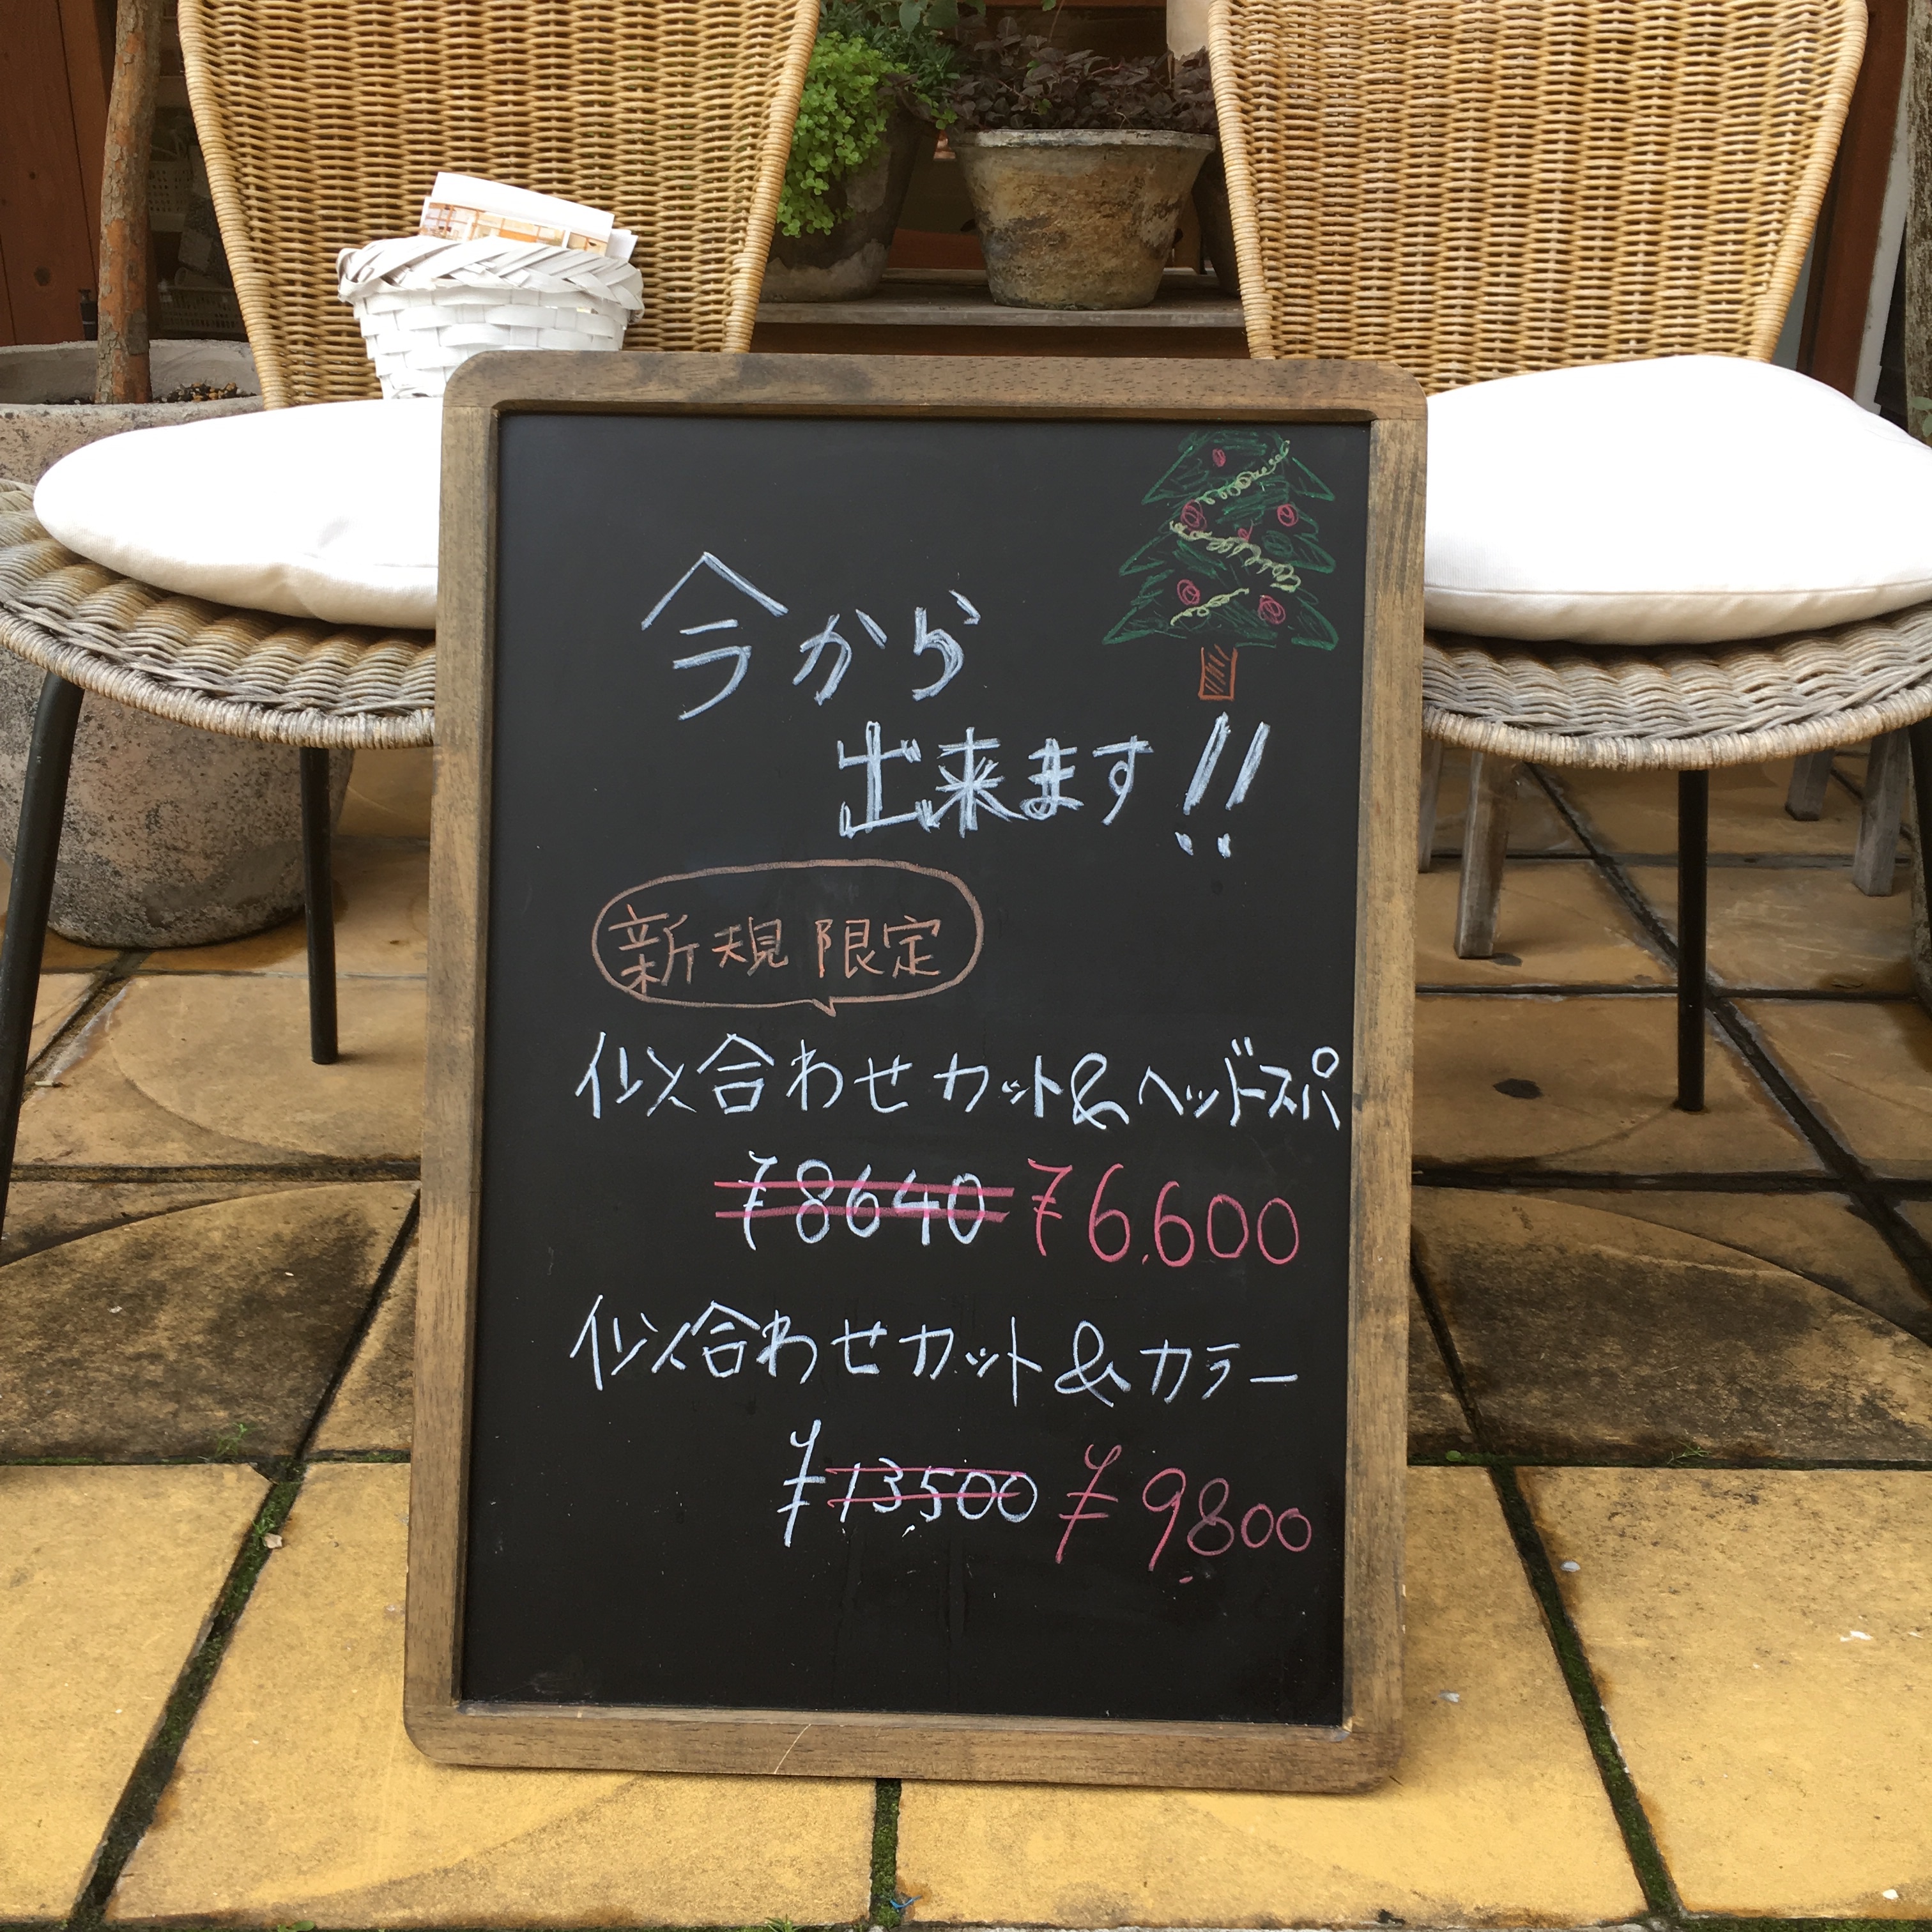 今から
出来ます!!
新規限定
似合わせカット&ヘッドスパ
¥8640 ¥6,600
似合わせカット&カラー
¥13,500 ¥9,800